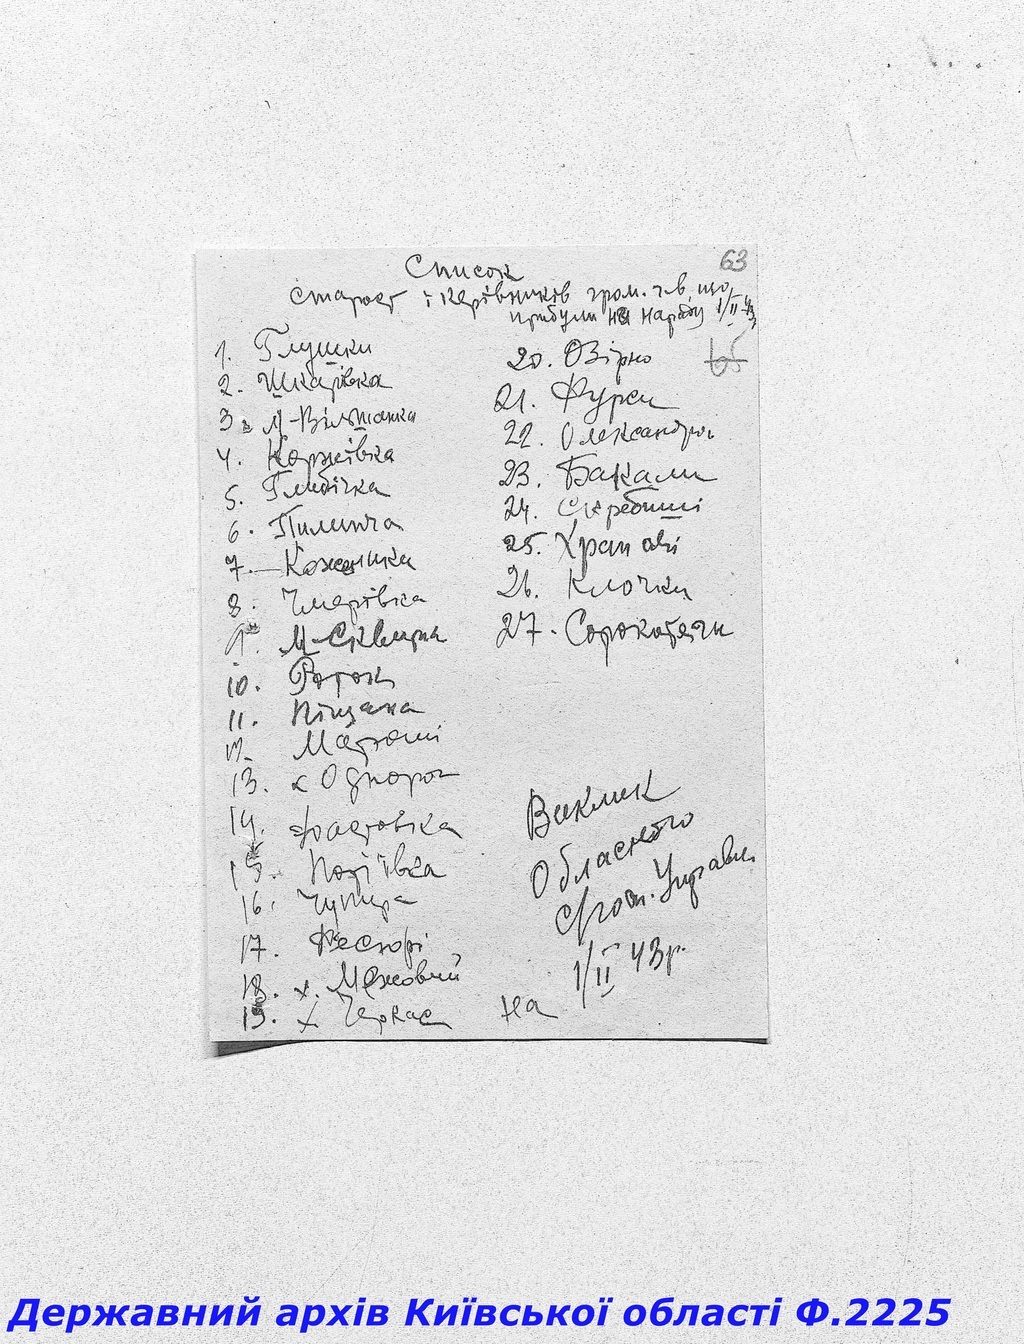 63
Список
старост і керівників гром. г-в, що
прибули на нараду 1/II-43
65
1. Глушки
2. Шкарівка
3. М-Вільшанка
4. Коржівка
5. Глибічка
6. Пилипча
7. Кожанка
8. Чмерівка
9. М-Сквирка
10. Роток
11. Піщана
12. Матюші
13. Однорог
14. Фастовка
15. Потіївка
16. Чупира
17. Fесюрі
18. х. Межовий
19. х. Черкас
20. Озірно
21. Фурси
22. Олександрі
23. Бакали
24. Скребиші
25. Храпачі
26. Клочки
27. Сорокотяги
Виклик
Обласного
С/госп. Управл.
на 1/II 43р.
Державний архів Київської області Ф.2225